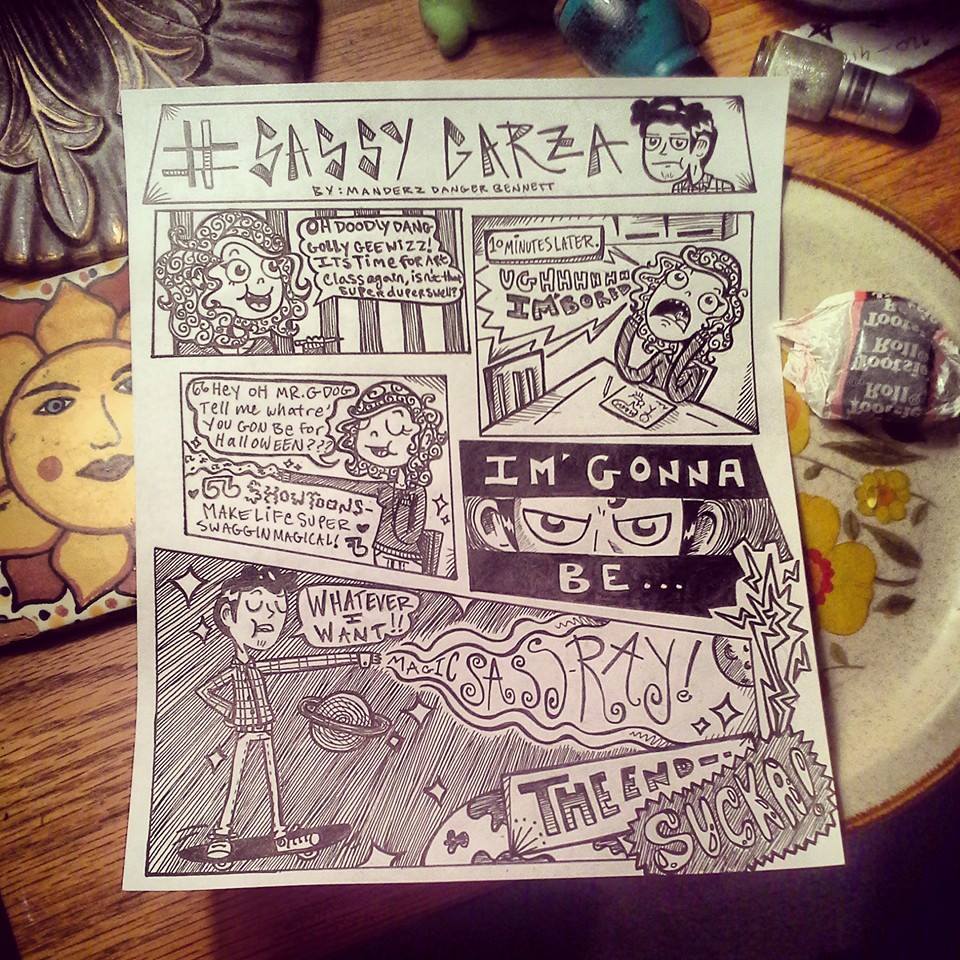 # SASSY GARZA
BY: MANDERZ DANGER BENNETT
OH DOODLY DANG
GOLLY GEE WIZZ!
ITS TIME FOR ART
Class again, isn't that
SUPER DUPER SWELL?
10 MINUTES LATER.
UGHHHHHHH
IM BORED
Hey OH MR. G DOG
Tell me whatre
YOU GON Be for
HALLOWEEN???
SHOWTOONS-
MAKE LIFE SUPER
SWAGGIN MAGICAL!
IM' GONNA
BE...
WHATEVER
I
WANT!!
MAGIC SASS-RAY!
THE END--
SUCKA!
Tootsie
Roll
Tootsie
Roll